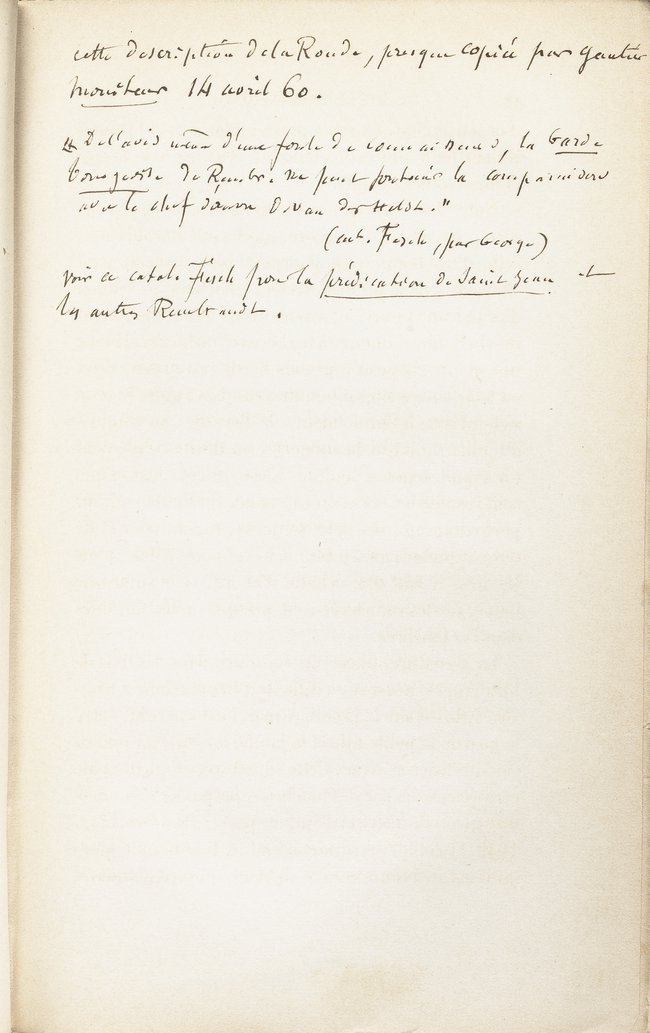 cette description de la Ronde, presque copiée par Gautier
Moniteur 14 avril 60.
"De l'avis même d'une foule de connaisseurs, la Garde
bourgeoise de Rembr. ne peut soutenir la comparaison
avec le chef d'œuvre de Van der Helst."
(cat. Fesch, par George)
voir ce catal. Fesch pour la prédication de Saint Jean et
les autres Rembrandt.